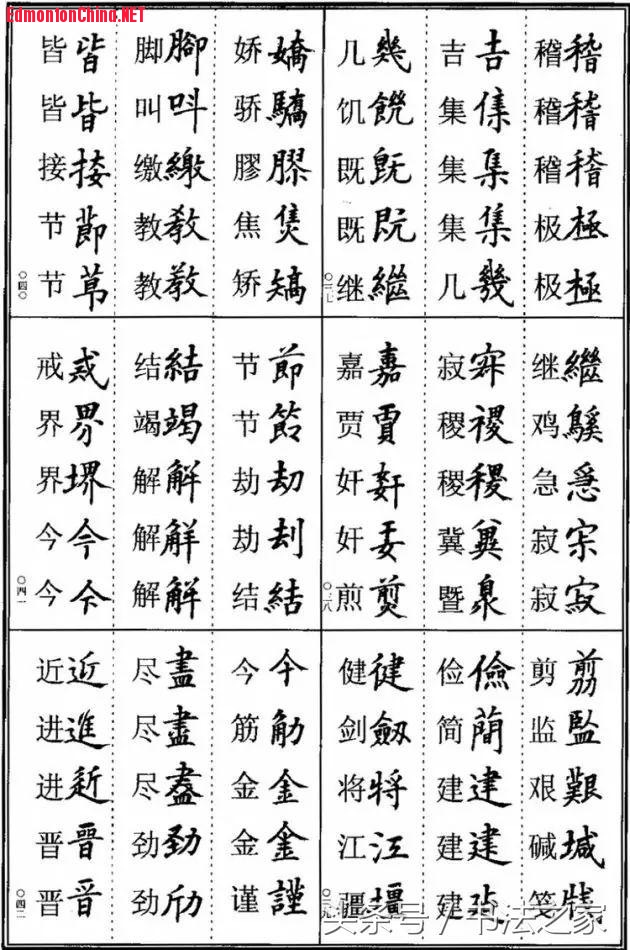 EdmontonChina.NET
稽稽 稽稽 稽稽 极極 极極
吉吉 集 集集 集集 几幾
几幾 饥饑 既旣 既既 继繼
〇三七
继繼 鸡鷄 急急 寂 寂寂
寂 稷稷 稷稷 冀冀 暨
嘉嘉 贾賈 奸姧 奸 煎
〇三八
剪剪 监監 艰艱 碱堿 笺牋
俭儉 简蕳 建建 建建 建
健健 剑劔 将将 江江 疆壃
娇嬌 骄驕 膠膠 焦 矫
脚腳 叫呌 缴繳 教敎 教教
皆皆 皆皆 接接 节節 节
〇四〇
节節 节 劫刧 劫刦 结結
结結 竭竭 解解 解觧 解觧
戒 界界 界堺 今今 今
〇四一
今 筋 金金 金金 谨謹
尽盡 尽盡 尽盡 劲勁 劲
近近 进進 进 晋晉 晋晋
〇四二
头条号 / 书法之家